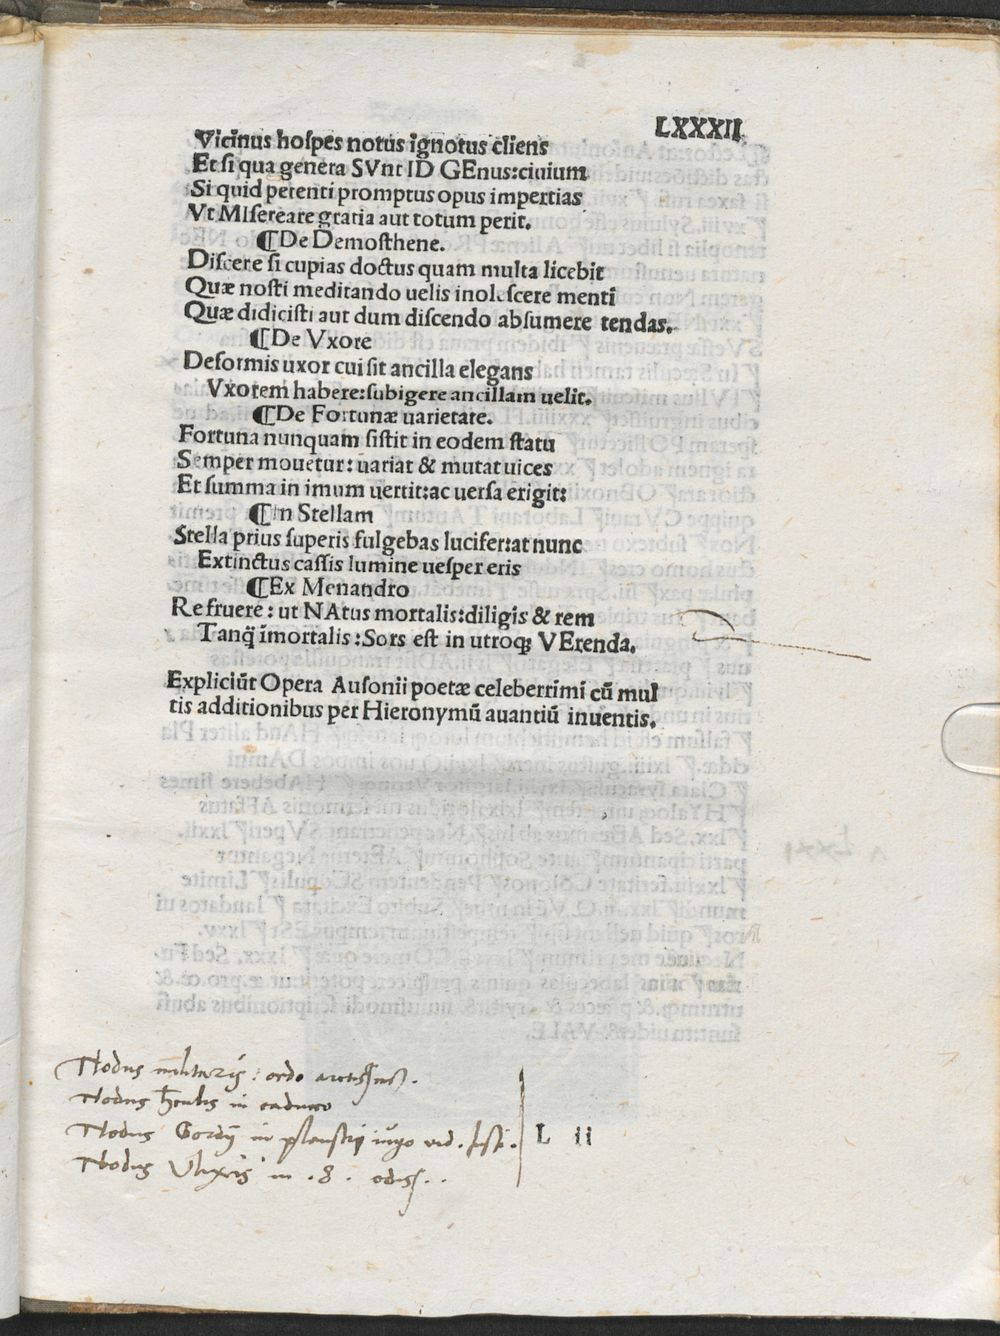 LXXXII
Vicinus hoſpes notus ignotus cliens
Et ſi qua genera SVnt ID GEnus:ciuium
Si quid petenti promptus opus impertias
Vt MIſereare gratia aut totum perit.
¶De Demoſthene.
Diſcere ſi cupias doctus quam multa licebit
Quæ noſti meditando uelis inoleſcere menti
Quæ didiciſti aut dum diſcendo abſumere tendas.
¶De Vxore
Deformis uxor cui ſit ancilla elegans
Vxorem habere:ſubigere ancillam uelit.
¶De Fortunæ uarietate.
Fortuna nunquam ſiſtit in eodem ſtatu
Semper mouetur: uariat & mutat uices
Et ſumma in imum uertit:ac uerſa erigit:
¶In Stellam
Stella prius ſuperis fulgebas lucifer:at nunc
Extinctus caſſis lumine ueſper eris
¶Ex Menandro
Re fruere: ut NAtus mortalis:diligis & rem
Tanq̃ īmortalis:Sors eſt in utroq; VErenda.
Expliciūt Opera Auſonii poetæ celeberrimi cū mul
tis additionibus per Hieronymū auantiū inuentis.
Nodus militaris: ordo
Nodus in
Nodus Gordij in iugo
Nodus Vlixis in .8. odiſſ.
L ii